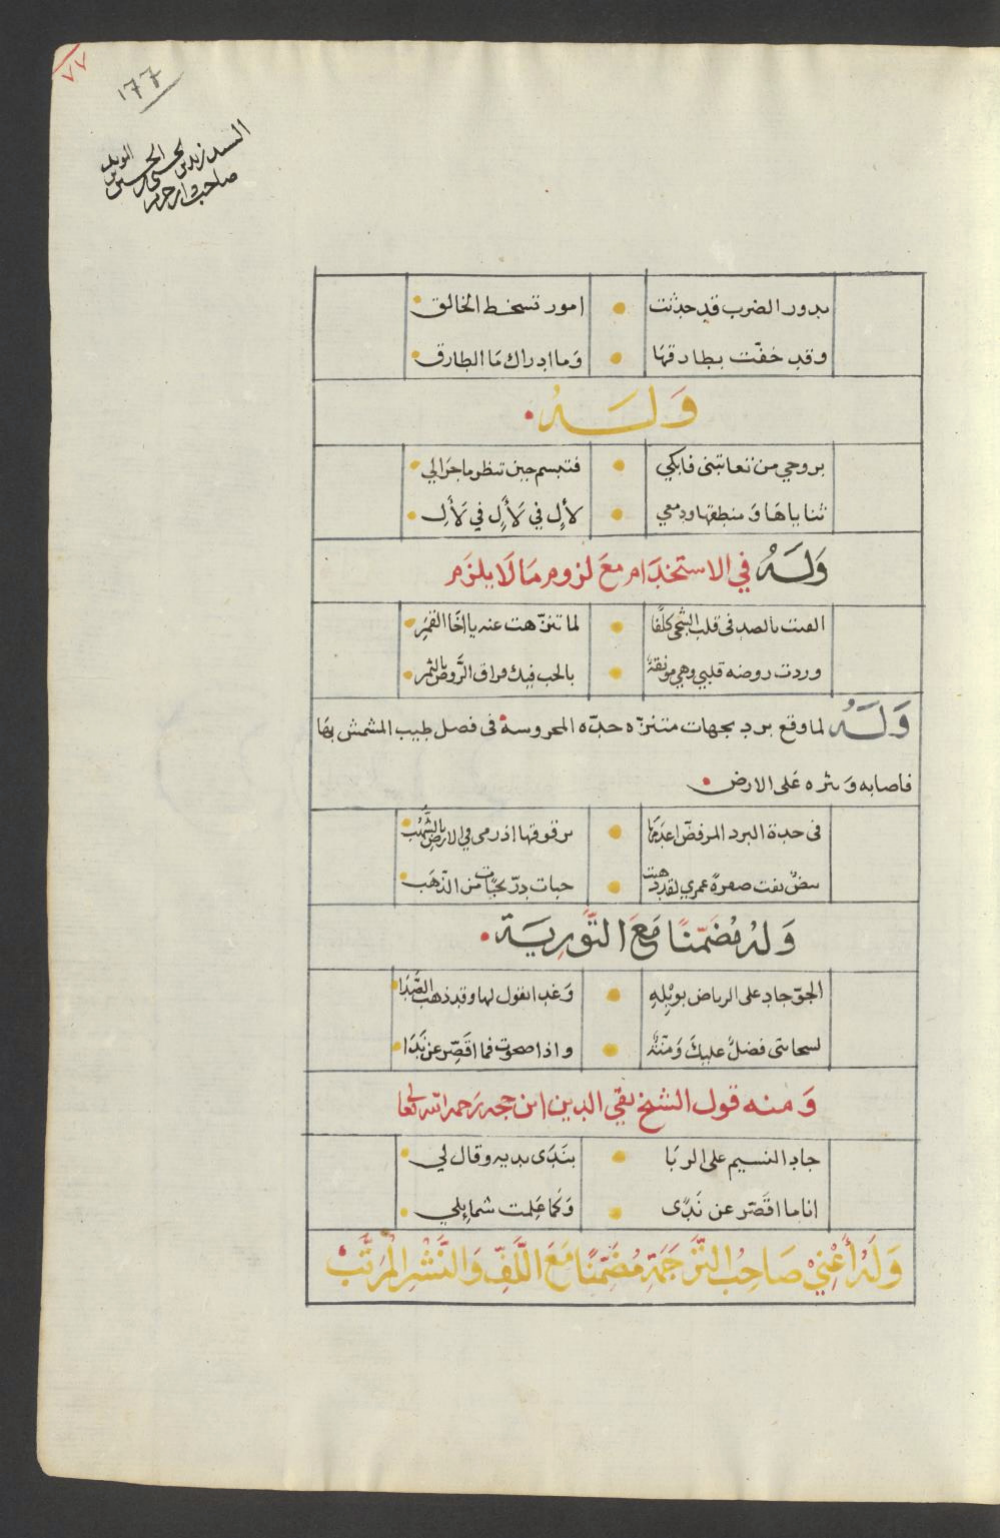 ٧٧
١٦٦
السيد زيد بن يحيى الحسين
صاحب
بدور الضرب قد حدثت امور تسخط الخالق
وقد خفّت بطارقها وما ادراك ما الطارق
وَلَــهُ
بروحي من تعاتبنى فابكي فتبسم حين تنظر ما جرا لي
ثناياها وَ منطقها ودمعي لأٰلٍ في لَأٰلٍ في لَأٰلِ
وَلَهُ في الاستخدَام معَ لزوم مَا لَا يلزَم
الفت بالصد فى قلب الشجى كلفًا لما تنزّهت عنه يا اخَا القمَرِ
وردت روضه قلبي وهي مونقةٌ بالحب فيك فراق الرَّوض بالثمر
وَلَهُ لما وقع برد بجهات متنزّه حدّه المحروسة فى فصل طيب المشمش بهَا
فاصابه وَنثره عَلى الارض
فى حدة البرد المرفضّ اعدَمهَا برقوقها اذ رمى في الارض بالشُّهُب
بيضٌ نفت صفرةً عمري لقد ذهبت حبات درّ بحبَّات من الذهَب
وَلهُ مُضَمّنًا مَعَ التَّورِيَة
الجوّ جاد على الرياض بوبْلِهِ وَغدا يقول لها وقد ذهب الصَّدَا
لسحابتى فضلٌ عليكَ وَمنّةٌ واذا صحوت فما اقَصّر عن نَدَا
وَمنه قول الشيخ تقيّ الدين ابن حجه رَحمه الله تعالى
جاد النسيم على الرُبَا بندَى يديه وقال لي
انا ما اقَصّر عن نَدًى وَكما عَلِمت شمايِلي
وَلَهُ أَعْنِيْ صَاحِبُ التَّرجَمَةِ مُضَمّنًا مَعَ اللَّفّ وَالنَّشْرِ المُرَتَّبْ